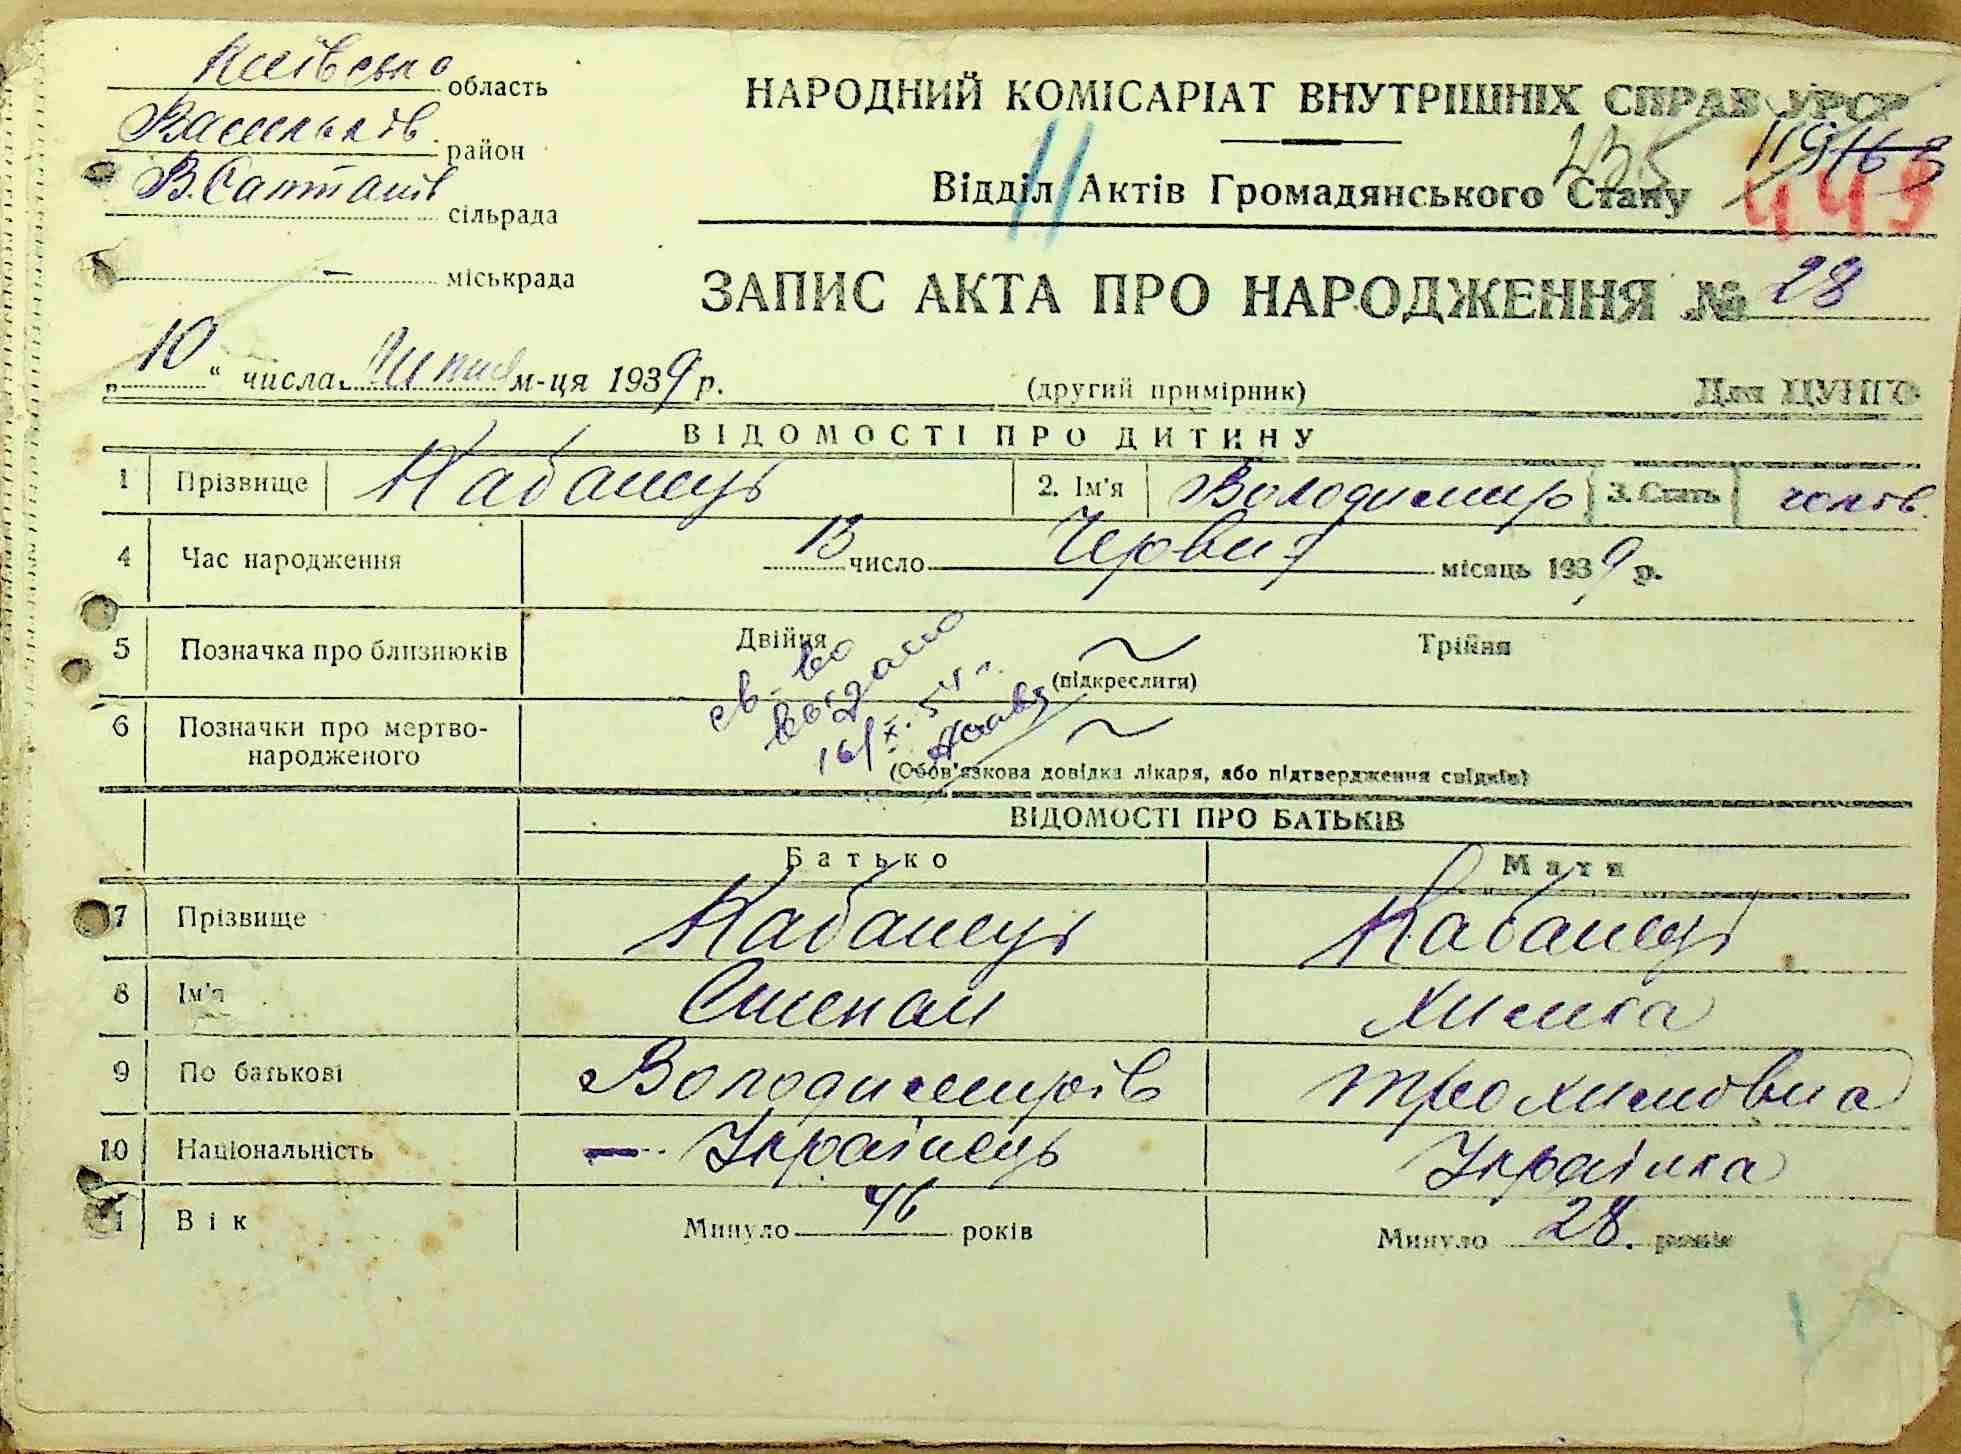 Київсько область
Васильків район
В. Солтанів сільрада
— міськрада
НАРОДНИЙ КОМІСАРІАТ ВНУТРІШНІХ СПРАВ УРСР
235
11
Відділ Актів Громадянського Стану
449
ЗАПИС АКТА ПРО НАРОДЖЕННЯ № 28
„10“ числа Липня м-ця 1939 р.
(другий примірник)
Для ЦУНГО
ВІДОМОСТІ ПРО ДИТИНУ
1 Прізвище Кабанець 2. Ім'я Володимир 3. Стать чолов.
4 Час народження 13 число Червня місяць 1939 р.
5 Позначка про близнюків Двійня Трійня
(підкреслити)
св-во
выдано
16/X. 54 г.
6 Позначки про мертво-
народженого
(Обов'язкова довідка лікаря, або підтвердження свідків)
ВІДОМОСТІ ПРО БАТЬКІВ
Батько Мати
7 Прізвище Кабанець Кабанець
8 Ім'я Степан Химка
9 По батькові Володимирів Трохимовна
10 Національність — Українець Українка
11 Вік Минуло 46 років Минуло 28. років